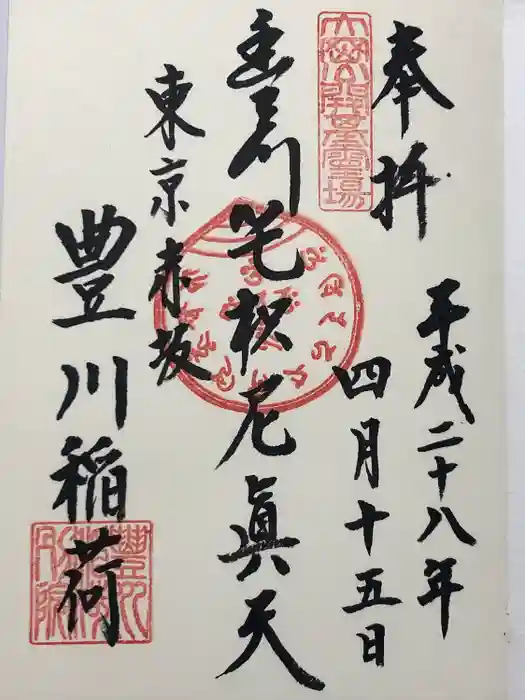 奉拝
平成二十八年
四月十五日
大岡開基霊場
豊川吒枳尼眞天
東京赤坂
豊川稲荷